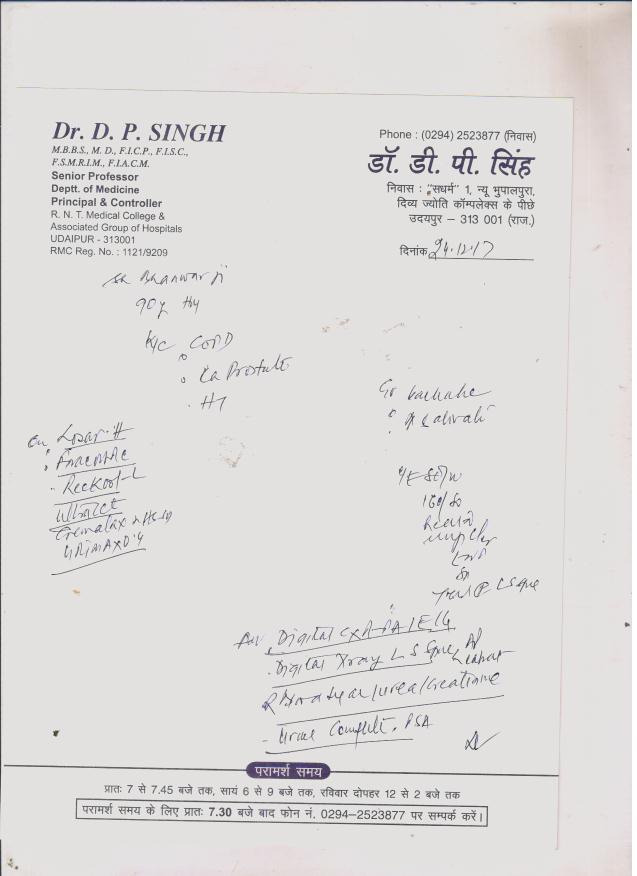 Dr. D. P. SINGH
M.B.B.S., M. D., F.I.C.P., F.I.S.C.,
F.S.M.R.I.M., F.I.A.C.M.
Senior Professor
Deptt. of Medicine
Principal & Controller
R. N. T. Medical College &
Associated Group of Hospitals
UDAIPUR - 313001
RMC Reg. No. : 1121/9209
Phone : (0294) 2523877 (निवास)
डॉ. डी. पी. सिंह
निवास : "सधर्म" 1, न्यू भुपालपुरा,
दिव्य ज्योति कॉम्पलेक्स के पीछे
उदयपुर – 313 001 (राज.)
दिनांक 24.12.17
Bhanwar ji
90y
K/c COPD
Ca Prostate
HT
Losar H
Reckool-L
Ultracet
backache
160/80
LS Spine
Adv Digital CXR-PA/ECG
Digital Xray L S Spine AP Lateral
Blood Sugar/urea/creatinine
- Urine Complete, PSA
परामर्श समय
प्रातः 7 से 7.45 बजे तक, सायं 6 से 9 बजे तक, रविवार दोपहर 12 से 2 बजे तक
परामर्श समय के लिए प्रातः 7.30 बजे बाद फोन नं. 0294–2523877 पर सम्पर्क करें।